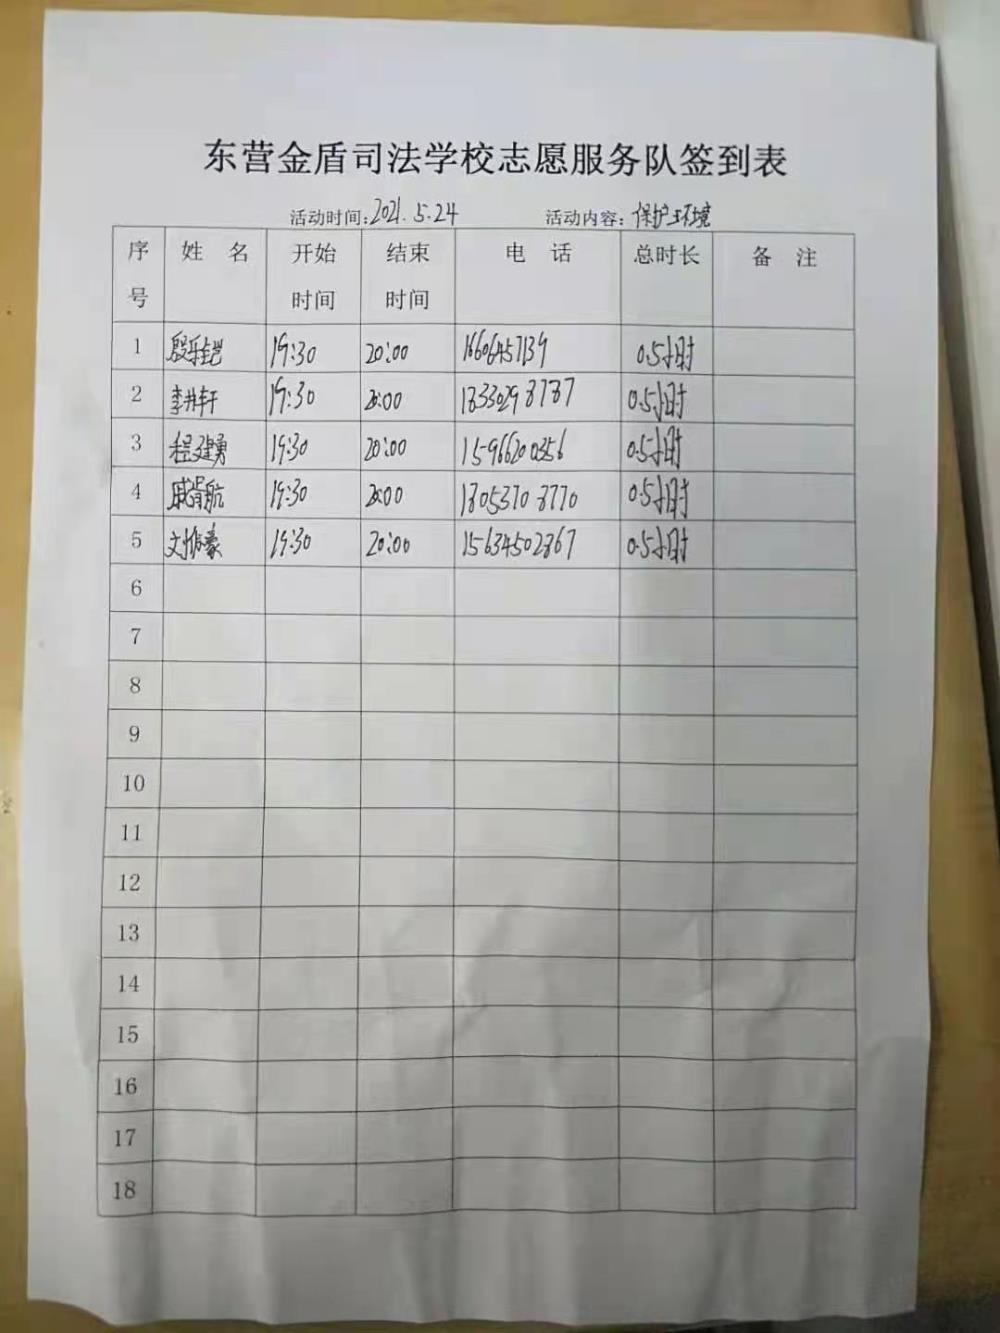 东营金盾司法学校志愿服务队签到表
活动时间:2021.5.24 活动内容:保护环境
序号 姓 名 开始时间 结束时间 电 话 总时长 备 注
1 19:30 20:00 16606457139 0.5小时
2 19:30 20:00 18330298787 0.5小时
3 程建勇 19:30 20:00 15966200356 0.5小时
4 19:30 20:00 18053708770 0.5小时
5 19:30 20:00 15634502867 0.5小时
6
7
8
9
10
11
12
13
14
15
16
17
18